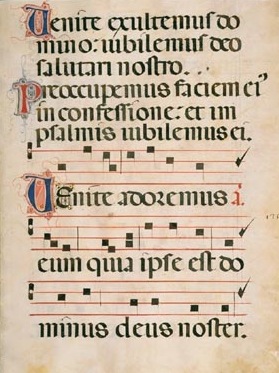 Uenite exultemus do
mino: iubilemus deo
salutari nostro...
Preoccupemus faciem ei'
in confessione: et im
psalmis iubilemus ei.
Uenite adoremus a.
eum quia ipse est do
minus deus noster.